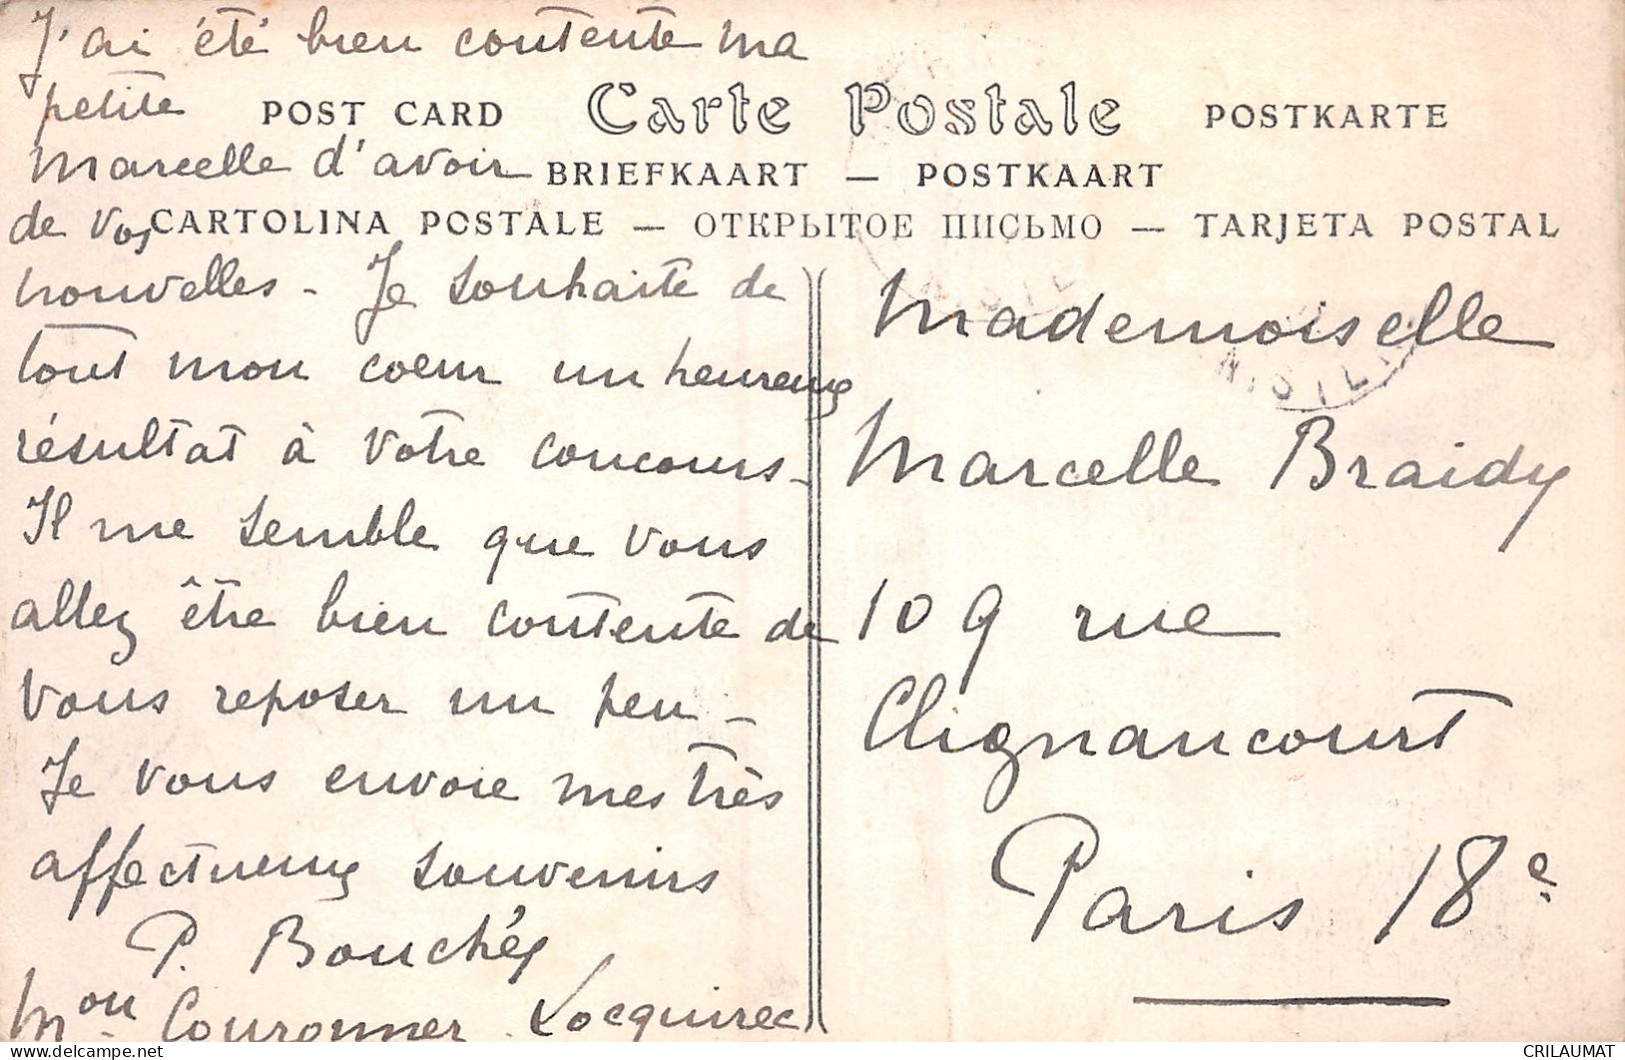 J'ai été bien contente ma
petite
Marcelle d'avoir
de vos
nouvelles - Je souhaite de
tout mon coeur un heureux
résultat à votre concours -
Il me semble que vous
allez être bien contente de
vous reposer un peu -
Je vous envoie mes très
affectueux souvenirs
P. Bouchez
Mon Couronner Locquirec
POST CARD Carte Postale POSTKARTE
BRIEFKAART — POSTKAART
CARTOLINA POSTALE — ОТКРЫТОЕ ПИСЬМО — TARJETA POSTAL
Mademoiselle
Marcelle Braidy
109 rue
Clignancourt
Paris 18e
CRILAUMAT